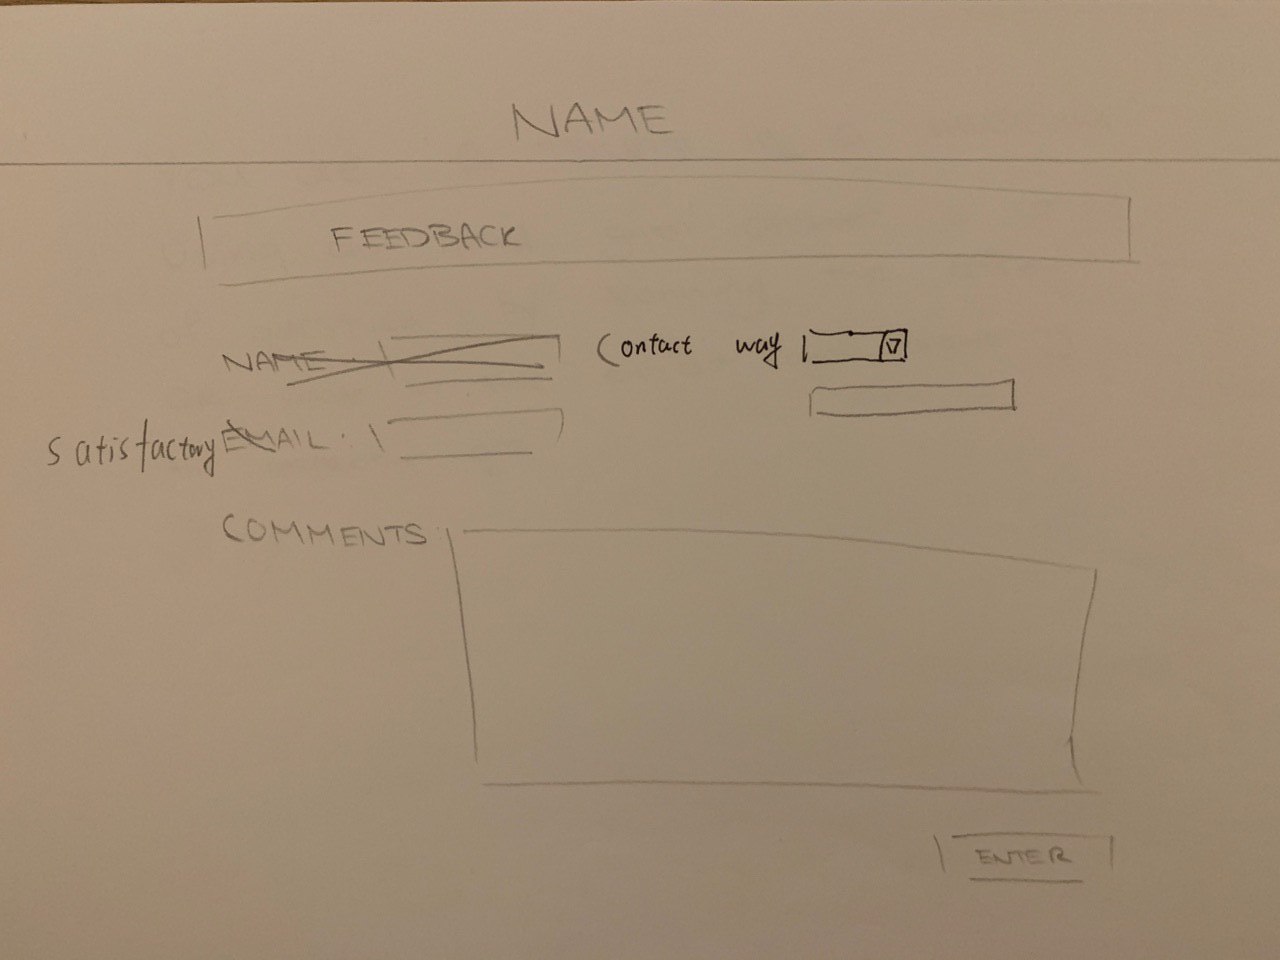 NAME
FEEDBACK
NAME Contact way
satisfactory EMAIL
COMMENTS
ENTER